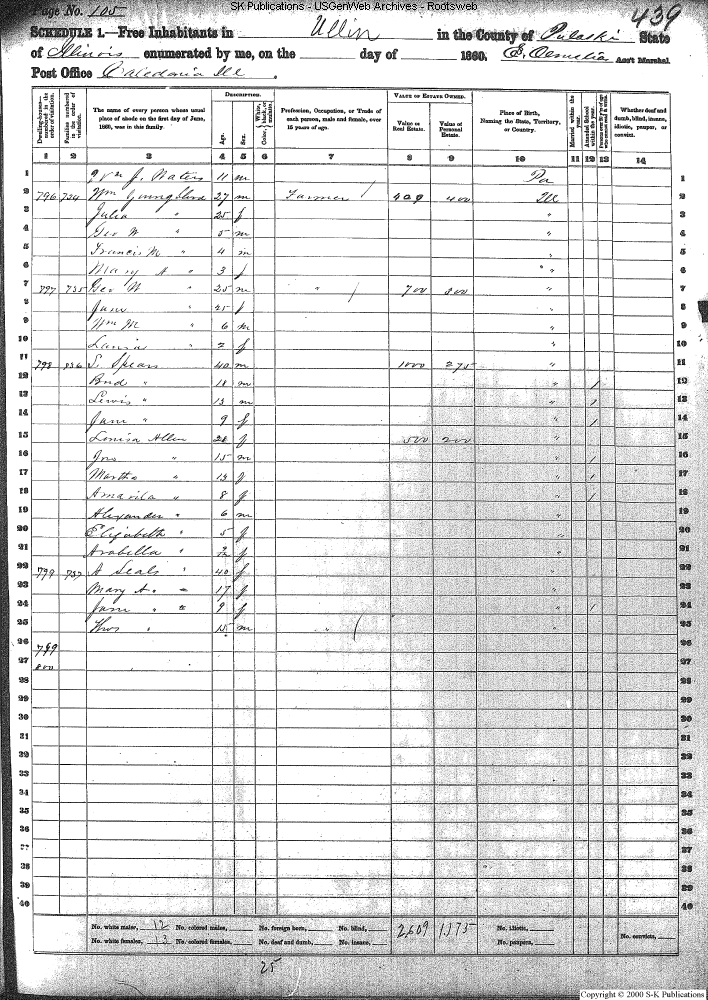 SK Publications - USGenWeb Archives - Rootsweb
Page No. 105
439
SCHEDULE 1.—Free Inhabitants in Ullin in the County of Pulaski State
of Illinois enumerated by me, on the day of 1860. Ass't Marshal.
Post Office Caledonia Ill.
Dwelling-houses—numbered in the order of visitation.
Families numbered in the order of visitation.
The name of every person whose usual place of abode on the first day of June, 1860, was in this family.
DESCRIPTION.
Age.
Sex.
Color, White, black, or mulatto.
Profession, Occupation, or Trade of each person, male and female, over 15 years of age.
VALUE OF ESTATE OWNED.
Value of Real Estate.
Value of Personal Estate.
Place of Birth, Naming the State, Territory, or Country.
Married within the year.
Attended School within the year.
Whether deaf and dumb, blind, insane, idiotic, pauper, or convict.
1 2 3 4 5 6 7 8 9 10 11 12 13 14
1 Wm J. Waters 11 m Pa 1
2 796 734 Wm Youngblood 27 m Farmer / 409 400 Ill 2
3 Julia " 25 f " 3
4 Geo W " 5 m " 4
5 Francis M " 4 m " 5
6 Mary A " 3 f " " 6
7 797 735 Geo W " 25 m " / 700 800 " 7
8 Jane " 25 f " 8
9 Wm M " 6 m " 9
10 " 2 f " 10
11 798 736 S. Spears 40 m 1000 275 " 11
12 Bud " 18 m " / 12
13 Lewis " 13 m " / 13
14 Jane " 9 f " / 14
15 Louisa Allen 28 f 500 200 " 15
16 Jno " 15 m " / 16
17 Martha " 13 f " / 17
18 " 8 f " / 18
19 Alexander " 6 m " 19
20 Elizabeth " 5 f " 20
21 Arabella " f " 21
22 799 737 A Seals " 40 f 22
23 Mary A. " 17 f 23
24 Jane " 9 f " / 24
25 Thos " 15 m " / 25
26 799 26
27 800 27
28 28
29 29
30 30
31 31
32 32
33 33
34 34
35 35
36 36
37 37
38 38
39 39
40 40
No. white males, 12 No. colored males, No. foreign born, No. blind, 2,609 1,175 No. idiotic,
No. white females, 13 No. colored females, No. deaf and dumb, No. insane, No. paupers, No. convicts,
25
Copyright © 2000 S-K Publications